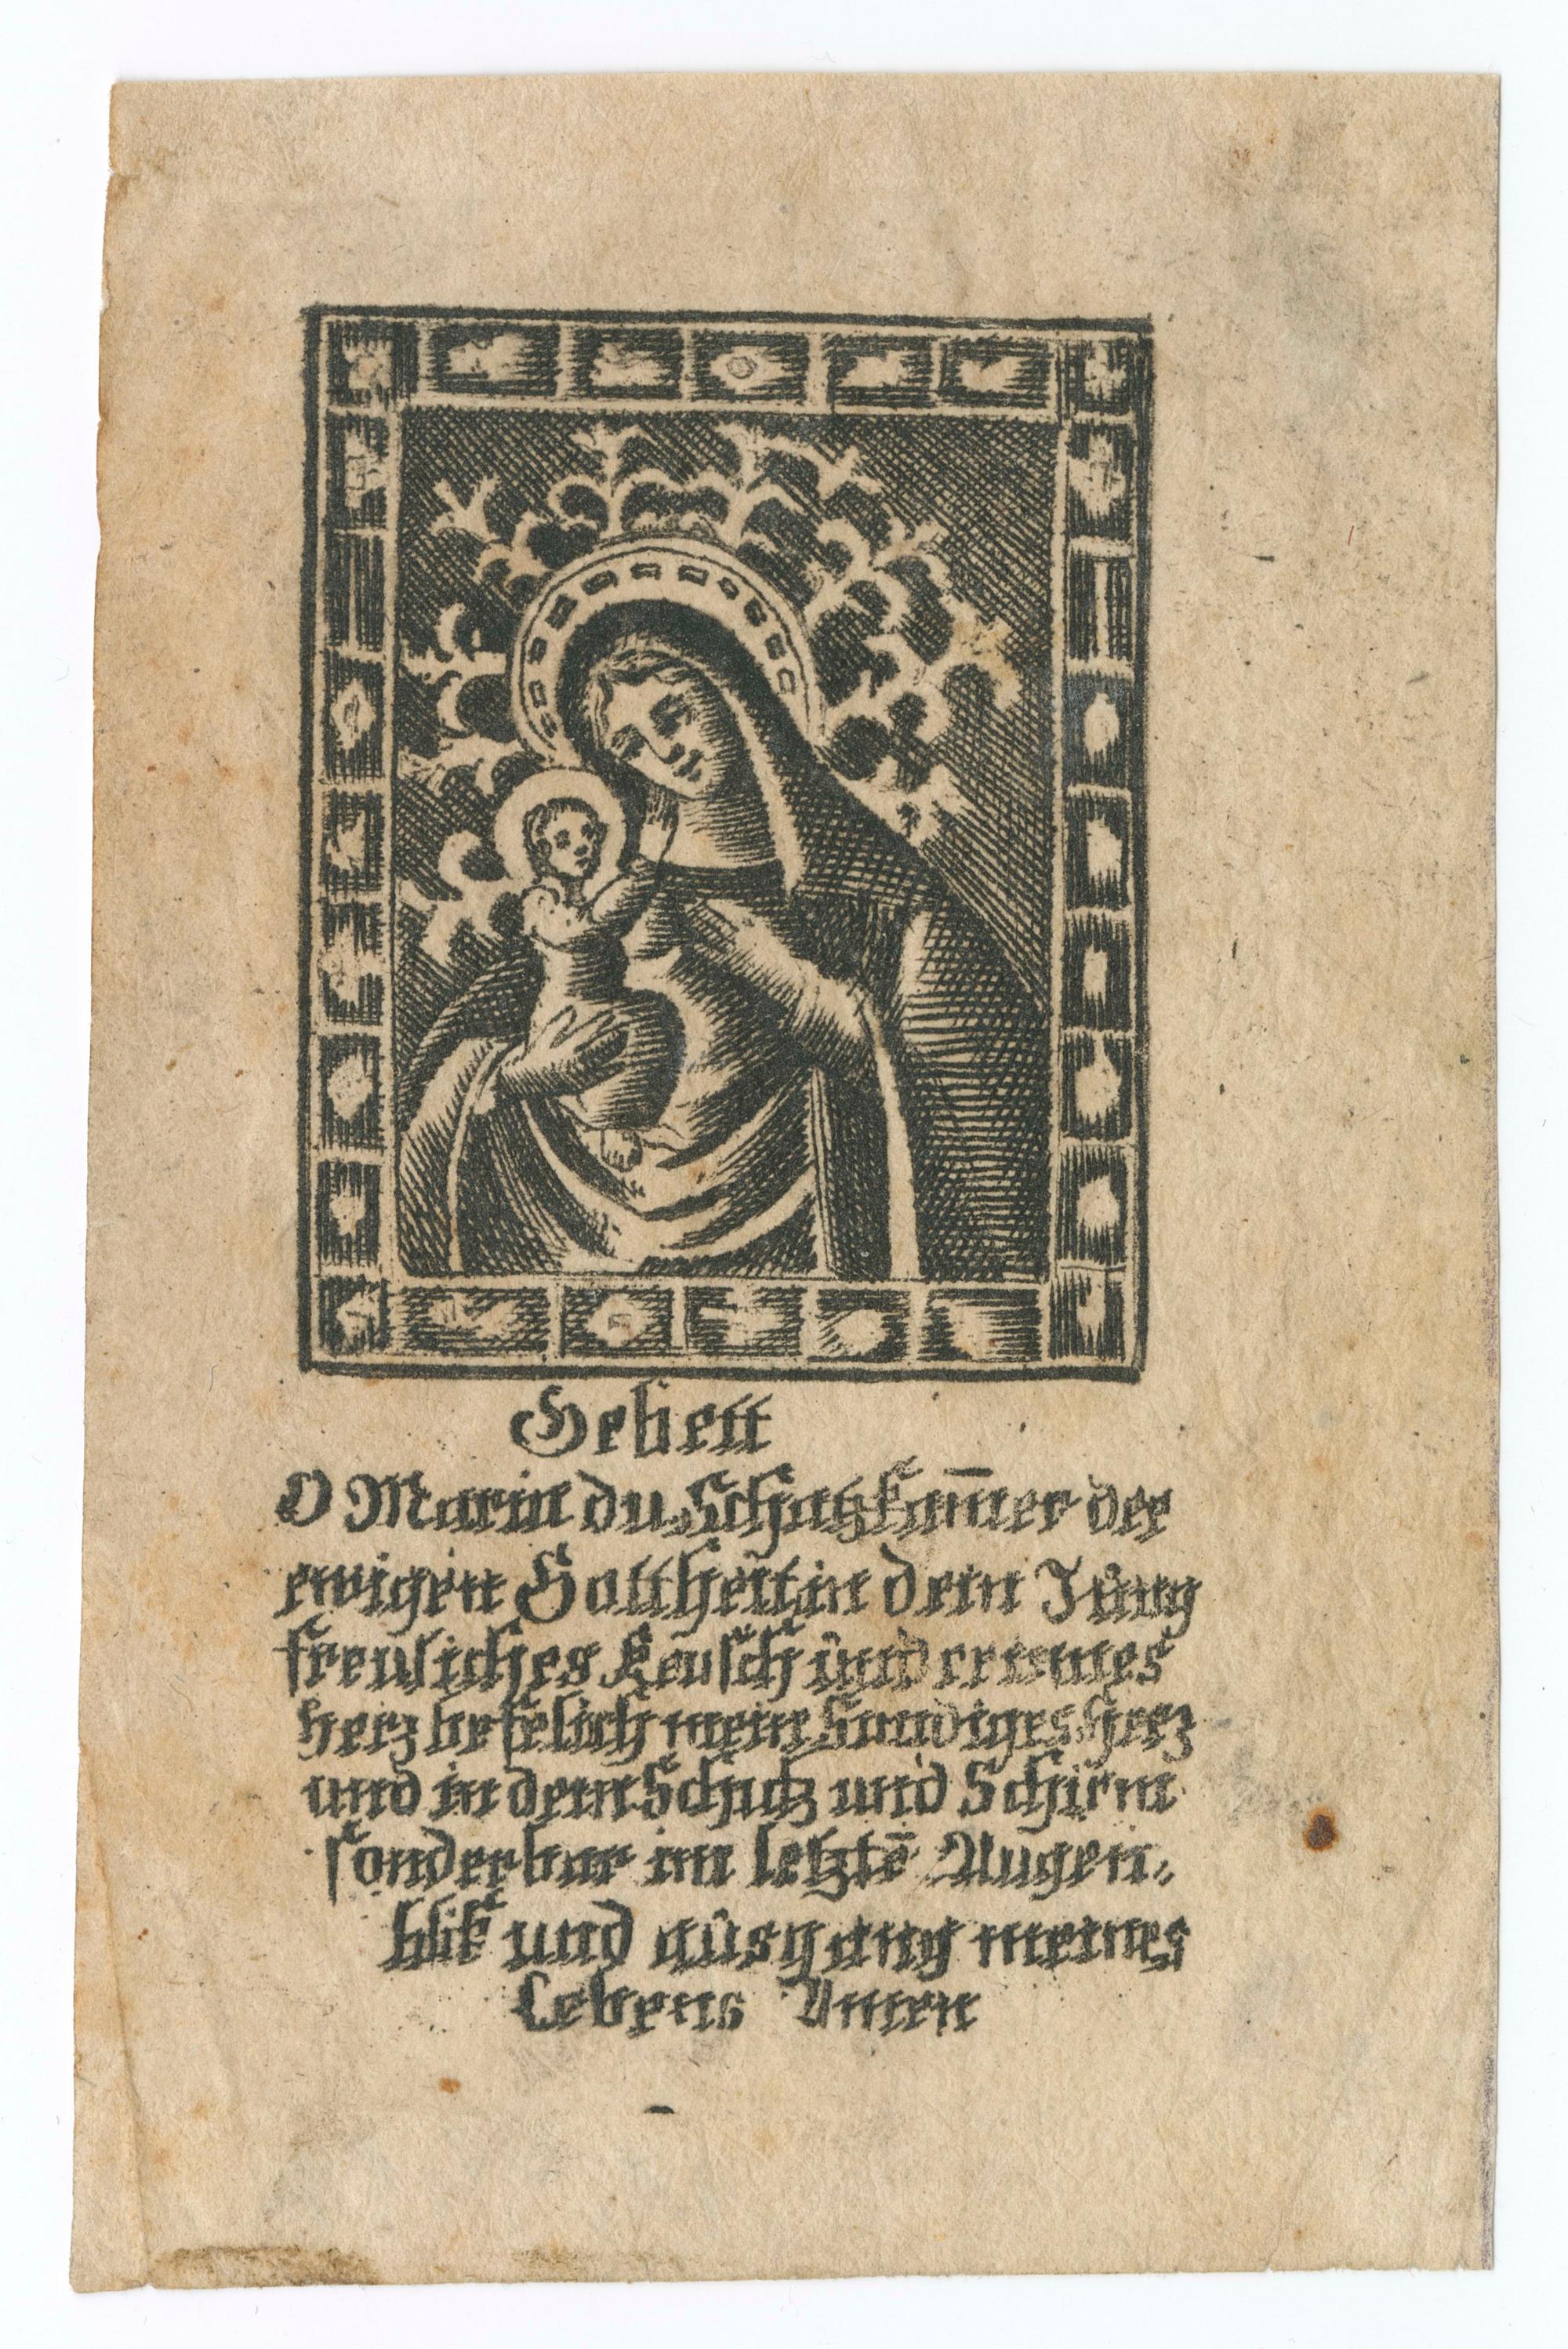 Gebett
O Maria du Schatzkam̄er der
ewigen Gottheit in dein Jung
freuliches Keusch und reines
herz befelich mein sundiges herz
und in dein Schutz und Schirm
sonderbar im letztē Augen⸗
blik und ausgang meines
Lebens Amen